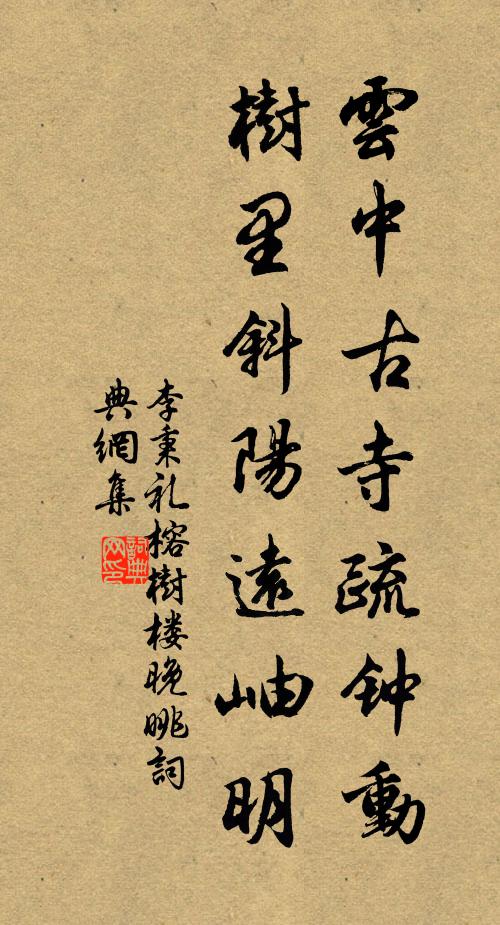 雲中古寺疏钟動
樹里斜陽遠岫明
李秉礼榕樹楼晚眺詞
典網集
詞典网印